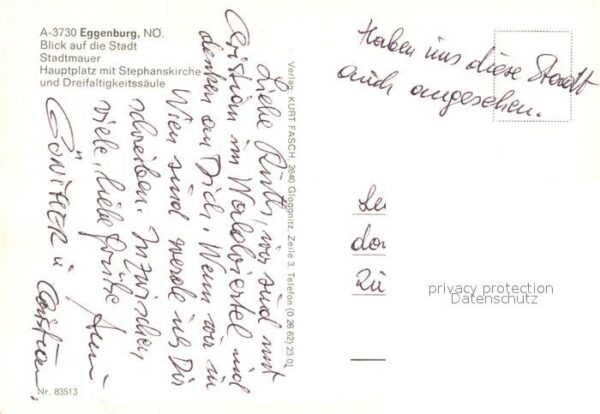 A-3730 Eggenburg, NÖ.
Blick auf die Stadt
Stadtmauer
Hauptplatz mit Stephanskirche
und Dreifaltigkeitssäule
Liebe Ruth, wir sind mit
Christian im Waldviertel und
denken an Dich. Wenn wir in
Wien sind werde ich Dir
schreiben. Inzwischen
viele, liebe Grüße
GÜNTHER u
Nr. 83513
Verlag: KURT FASCH, 2640 Gloggnitz, Zeile 3, Telefon (0 26 62) 23 01
Haben uns diese Stadt
auch angesehen.
privacy protection
Datenschutz